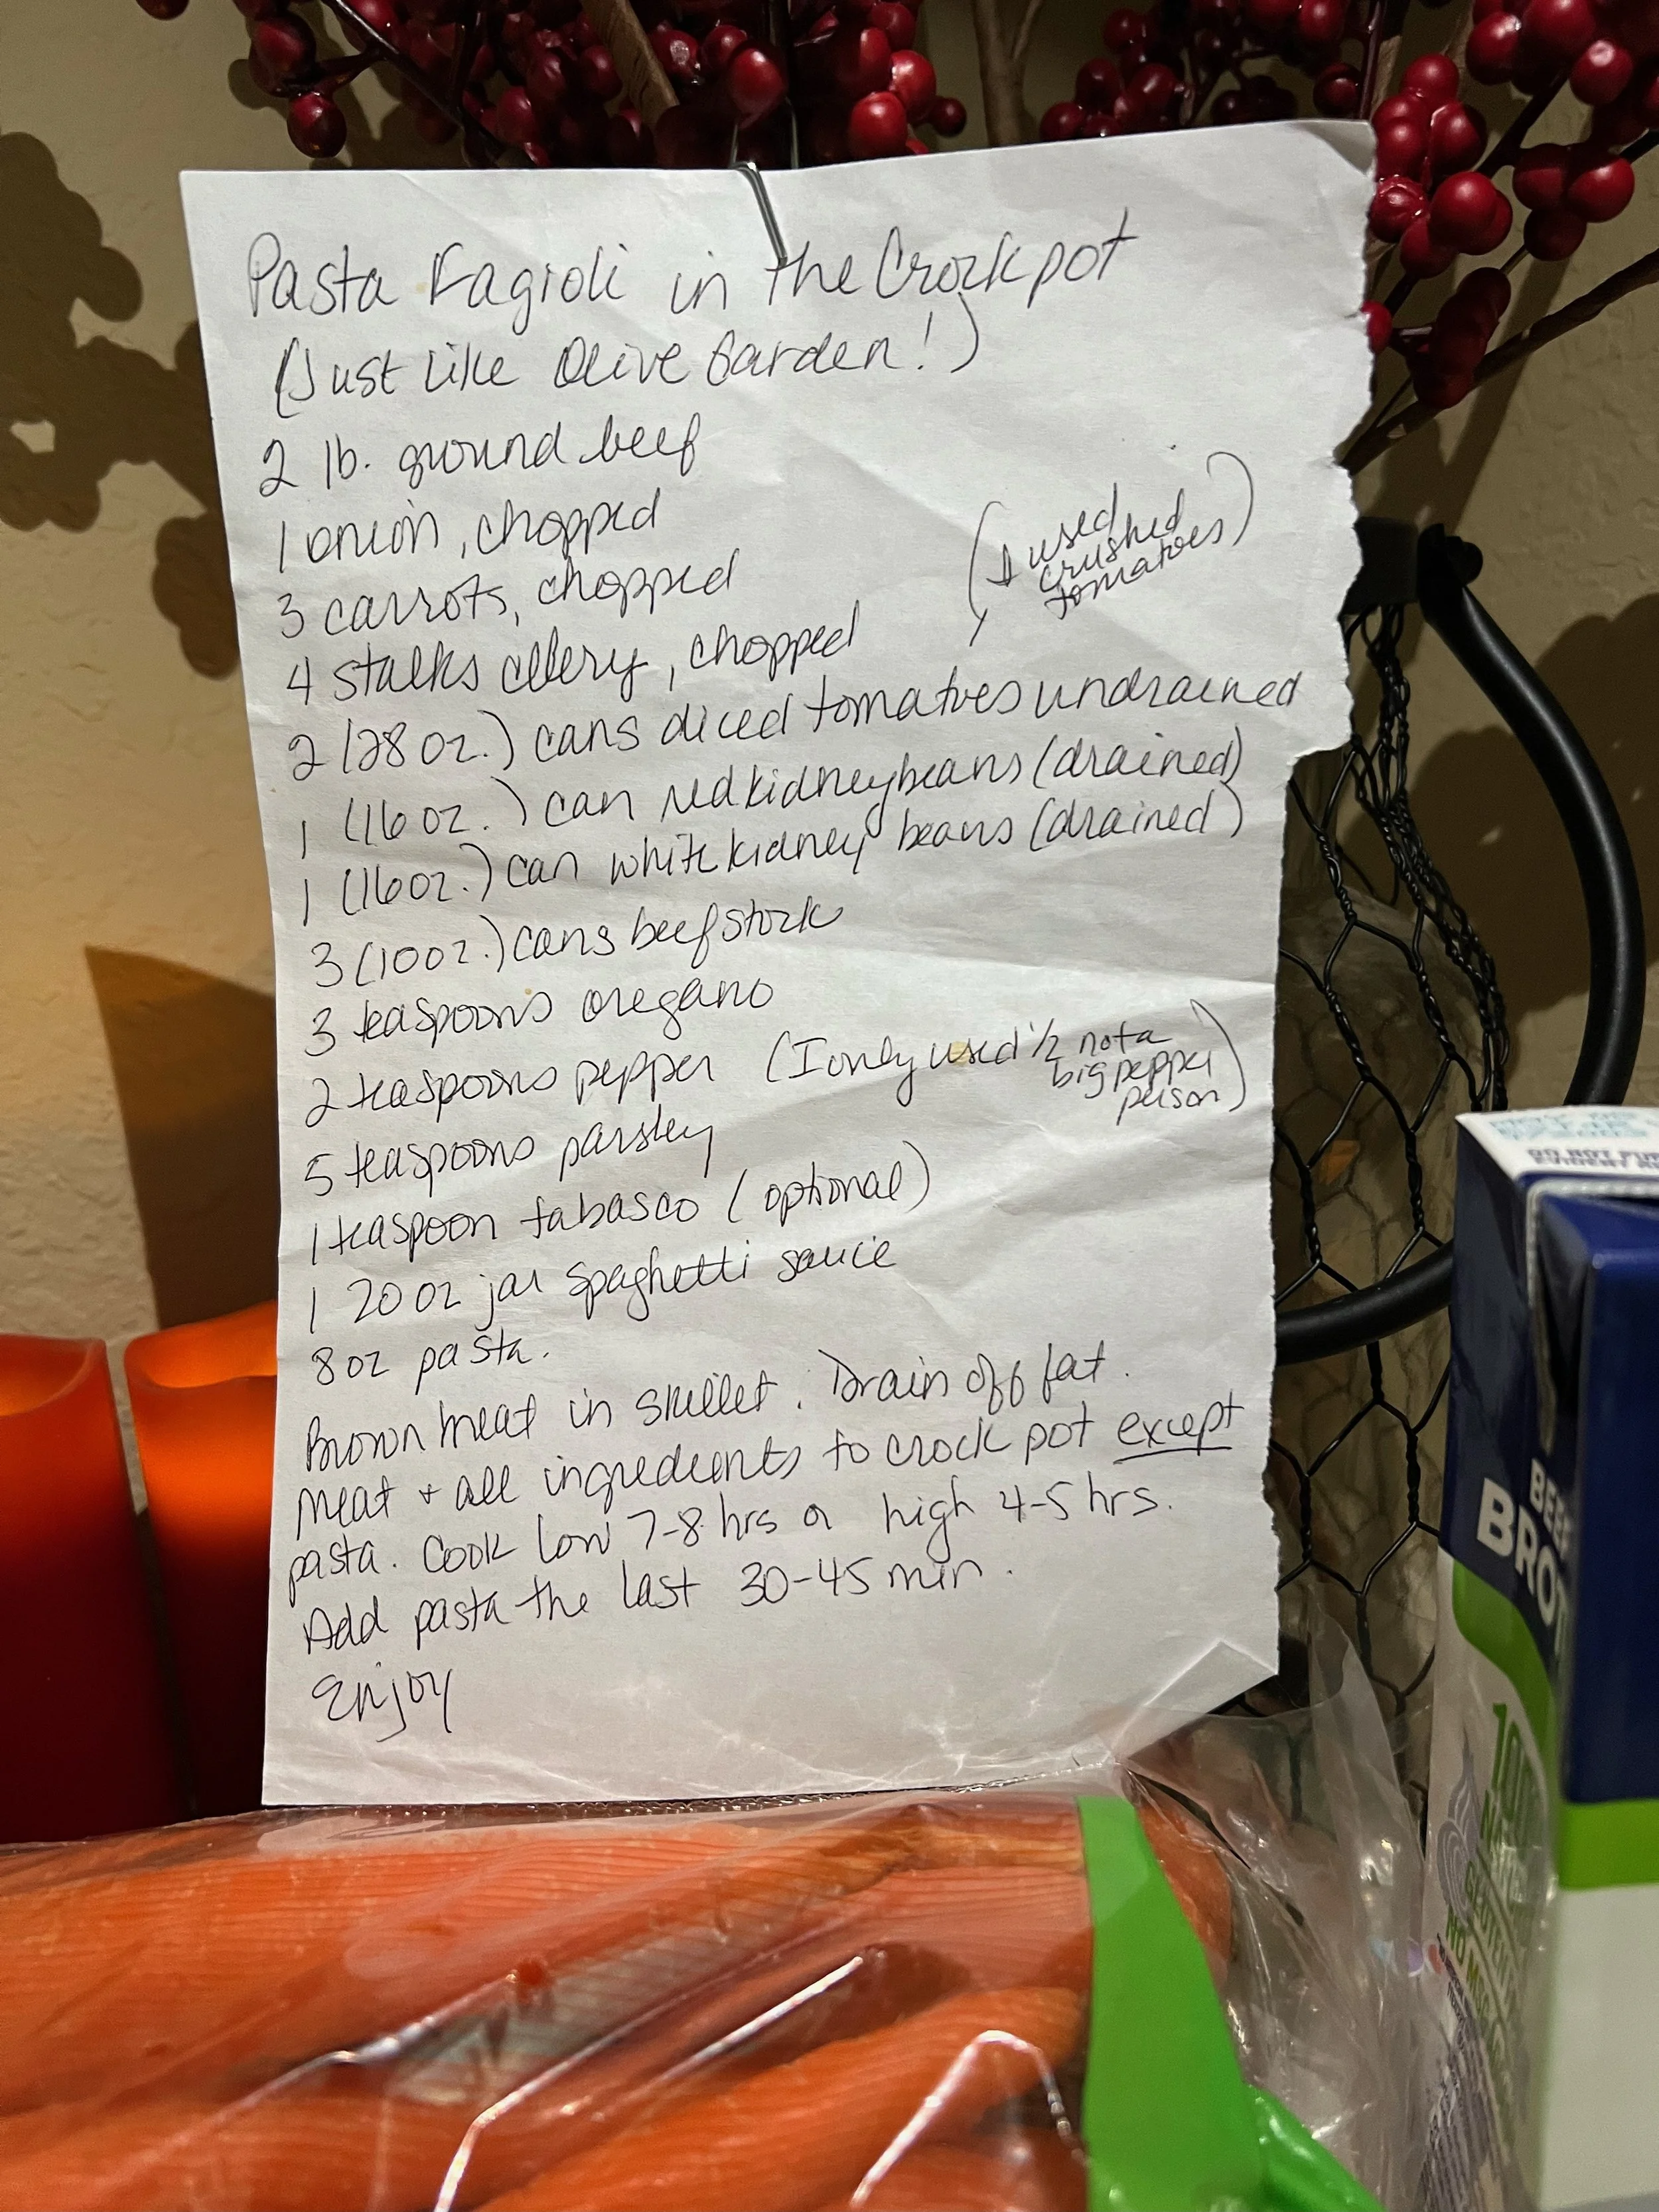 Pasta Fagioli in the Crockpot
(Just Like Olive Garden!)
2 lb. ground beef
1 onion, chopped
3 carrots, chopped
4 stalks celery, chopped
(I used
crushed
tomatoes)
2 (28 oz.) cans diced tomatoes undrained
1 (16 oz.) can red kidney beans (drained)
1 (16oz.) can white kidney beans (drained)
3 (10oz.) cans beef stock
3 teaspoons oregano
2 teaspoons pepper (I only used 1/2 not a
big pepper
person)
5 teaspoons parsley
1 teaspoon tabasco (optional)
1 20 oz jar spaghetti sauce
8 oz pasta.
Brown meat in skillet. Drain off fat.
Meat + all ingredients to crock pot except
pasta. Cook low 7-8 hrs or high 4-5 hrs.
Add pasta the last 30-45 min.
Enjoy
DO NOT
BEEF
BRO